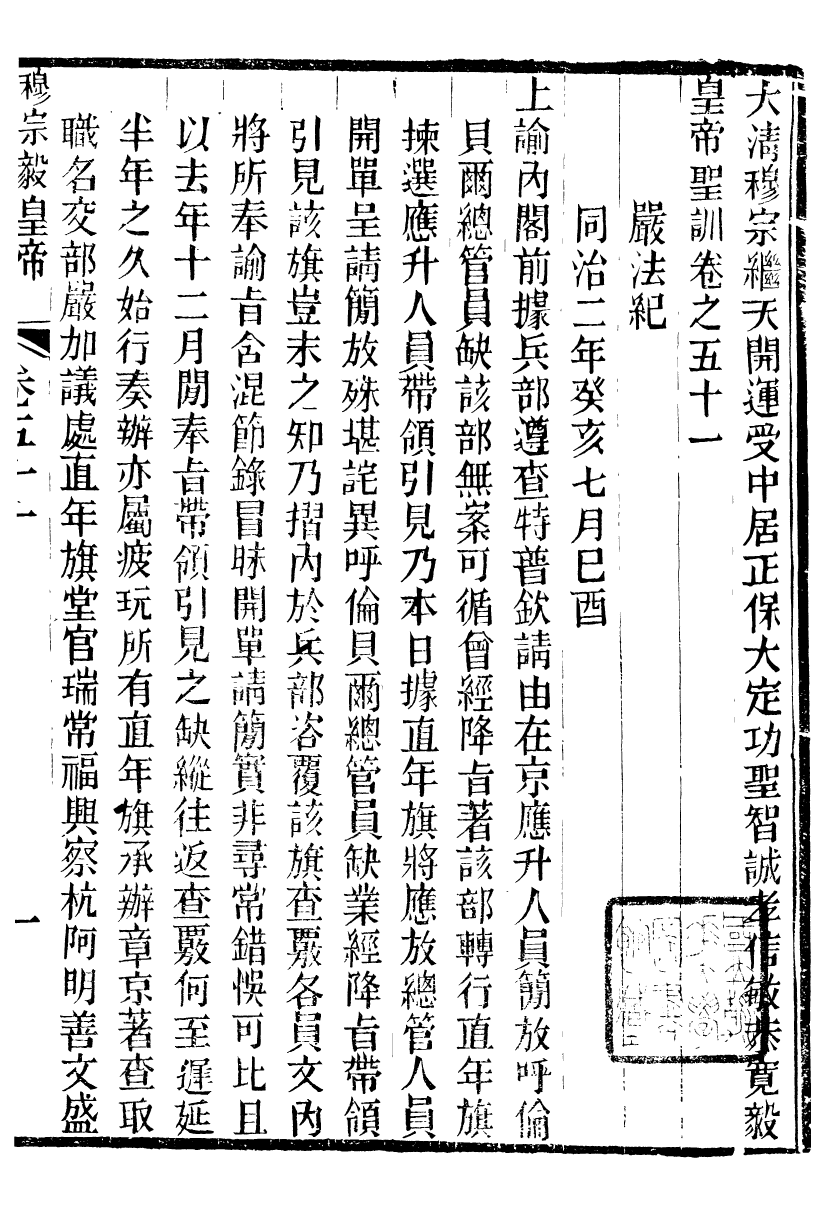 大清穆宗繼天開運受中居正保大定功聖智誠孝信敏恭寬毅
皇帝聖訓卷之五十一
嚴法紀
同治二年癸亥七月巳酉
上諭內閣前據兵部遵查特普欽請由在京應升人員簡放呼倫
貝爾總管員缺該部無案可循曾經降旨著該部轉行直年旗
揀選應升人員帶領引見乃本日據直年旗將應放總管人員
開單呈請簡放殊堪詫異呼倫貝爾總管員缺業經降旨帶領
引見該旗豈未之知乃摺內於兵部咨覆該旗查覈各員文內
將所奉諭旨含混節錄冒昧開單請簡實非尋常錯悞可比且
以去年十二月閒奉旨帶領引見之缺縱往返查覈何至遲延
半年之久始行奏辦亦屬疲玩所有直年旗承辦章京著查取
職名交部嚴加議處直年旗堂官瑞常福興察杭阿明善文盛
穆宗毅皇帝
卷五十一
一